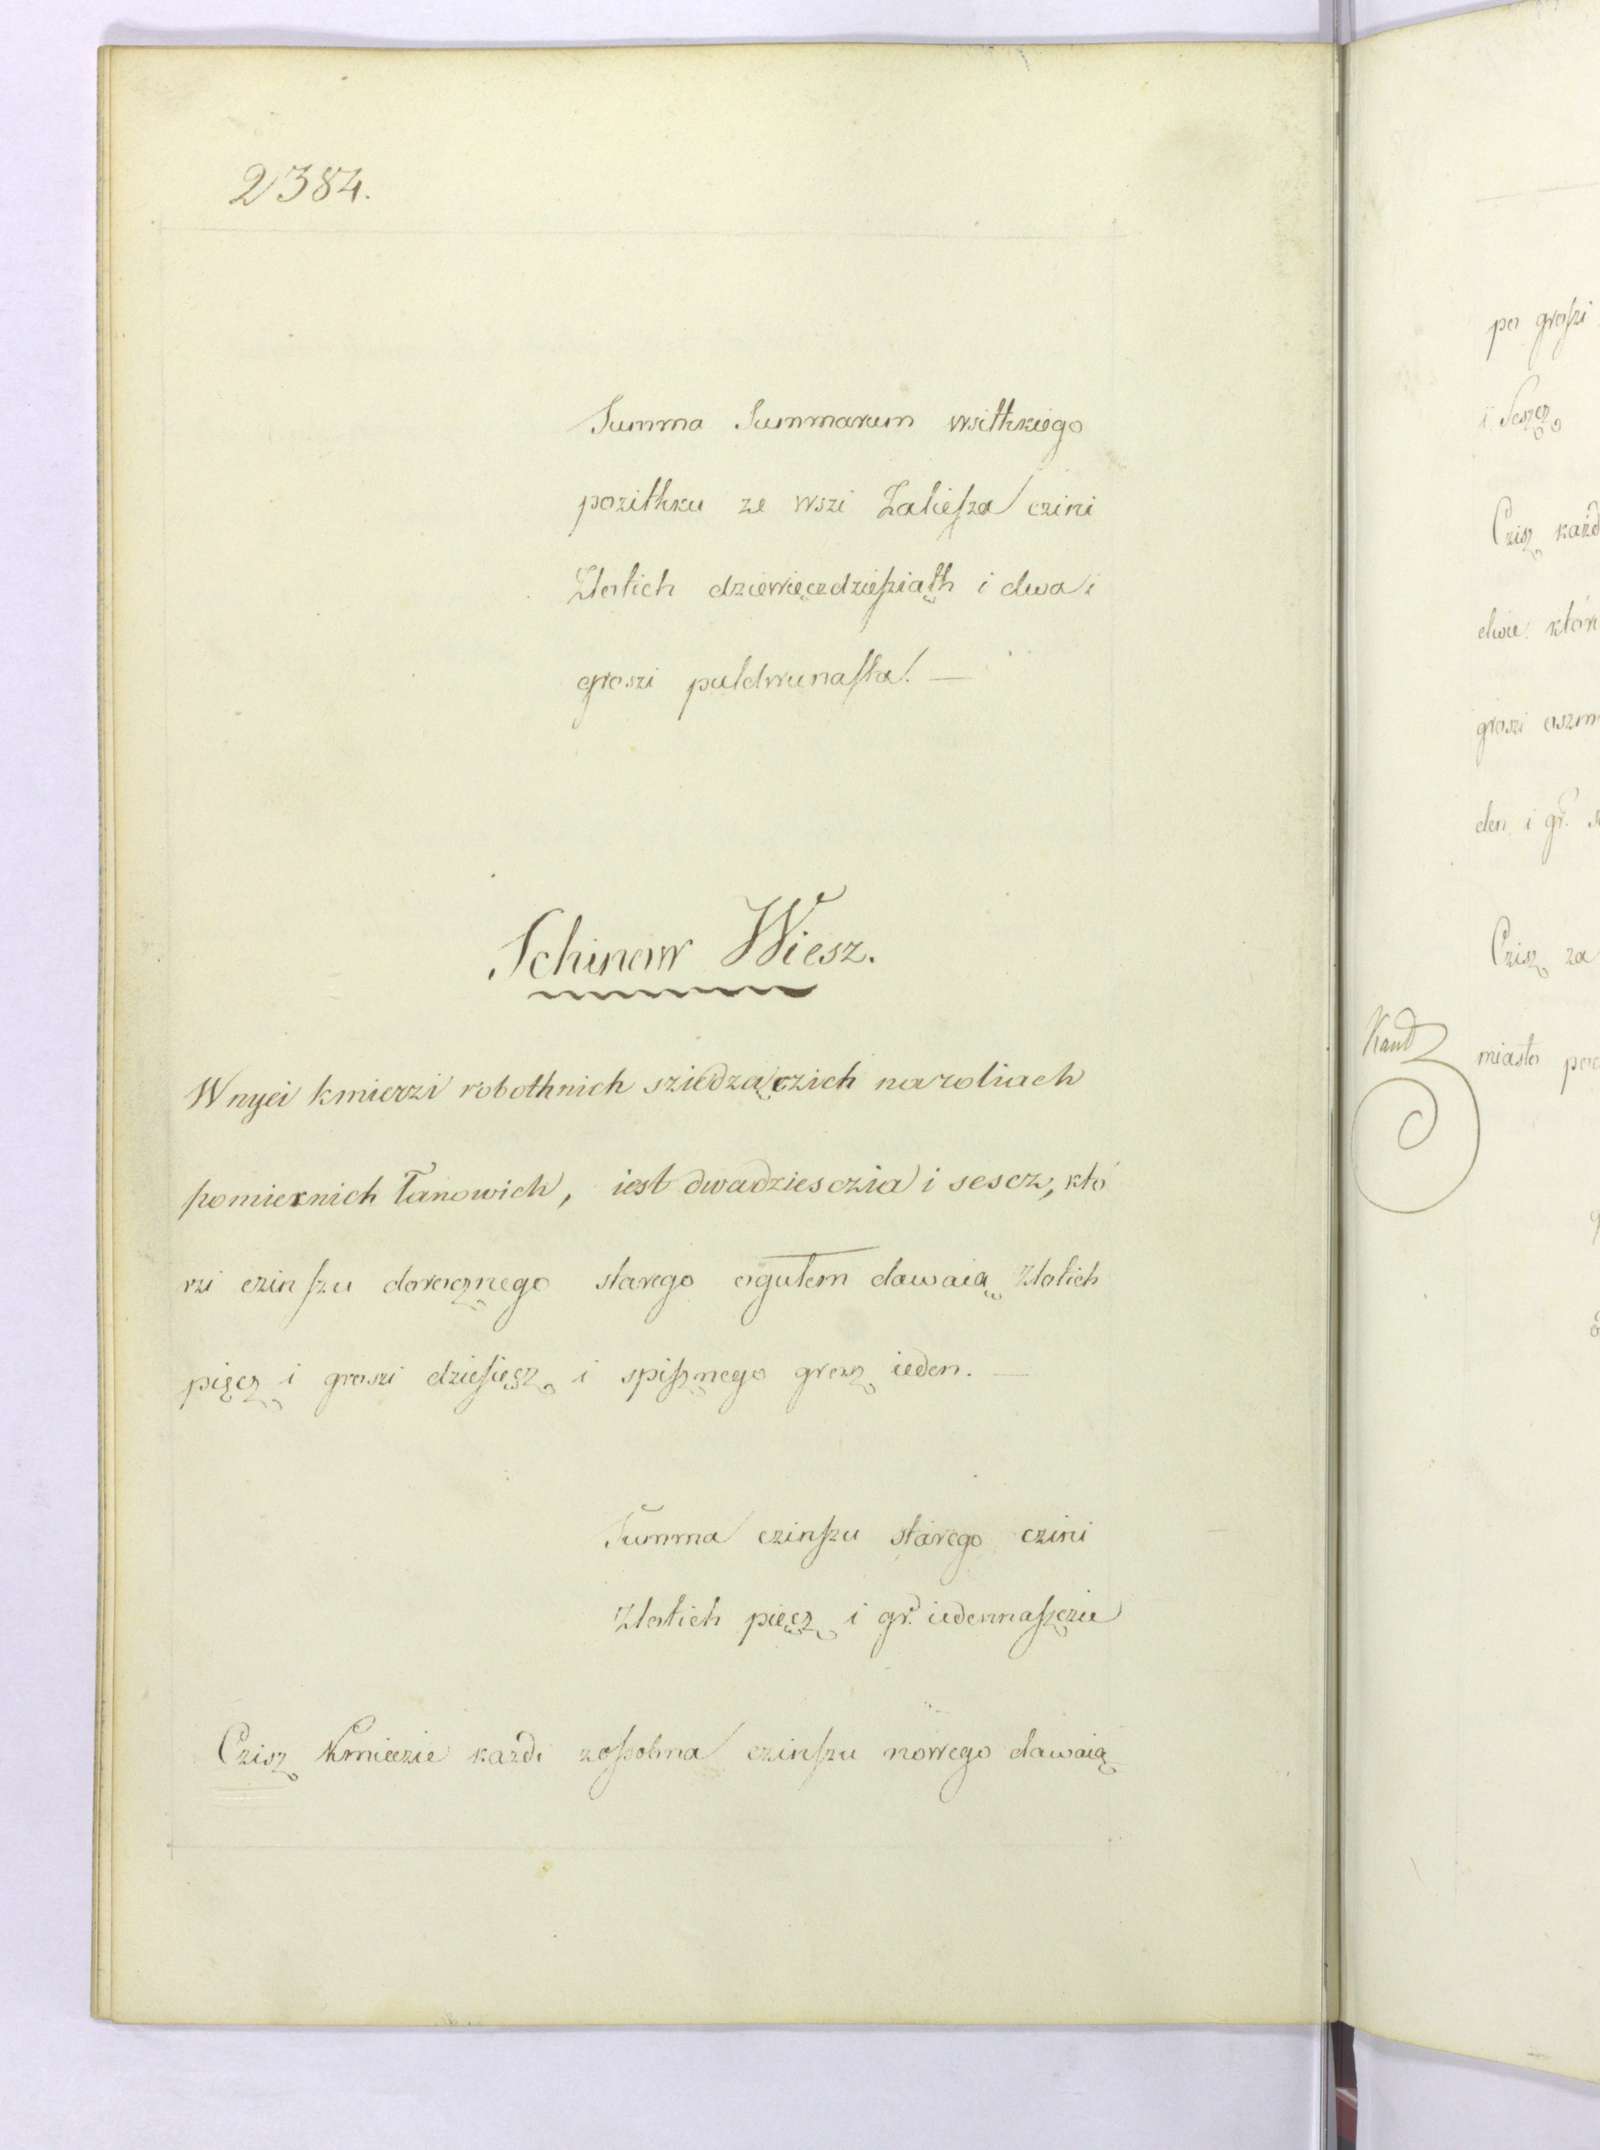 2384.
Summa Summarum wsithkiego
pozithku ze wszi Zaliesza czini
Zlotich dziewięczdziesiąth i dwa i
groszi puldwunasta. —
Schinow Wiesz.
W nyei kmierzi robothnich sziedzączich na roliach
pomiernich Łanowich, iest dwadziesczia i sescz, któ
rzi czinszu dorocznego starego ogułem dawaią Zlotich
pięcz i groszi dziesięcz i spisznego grosz ieden. —
Summa czinszu starego czini
Zlotich pięcz i gr. iedennaszczie
Czisz Kmieczie każdi zosobna czinszu nowego dawaią
po groszi
i Sescz
Czisz każd
dwie któr
groszi oszm
den i gr.
Czisz za
miasto